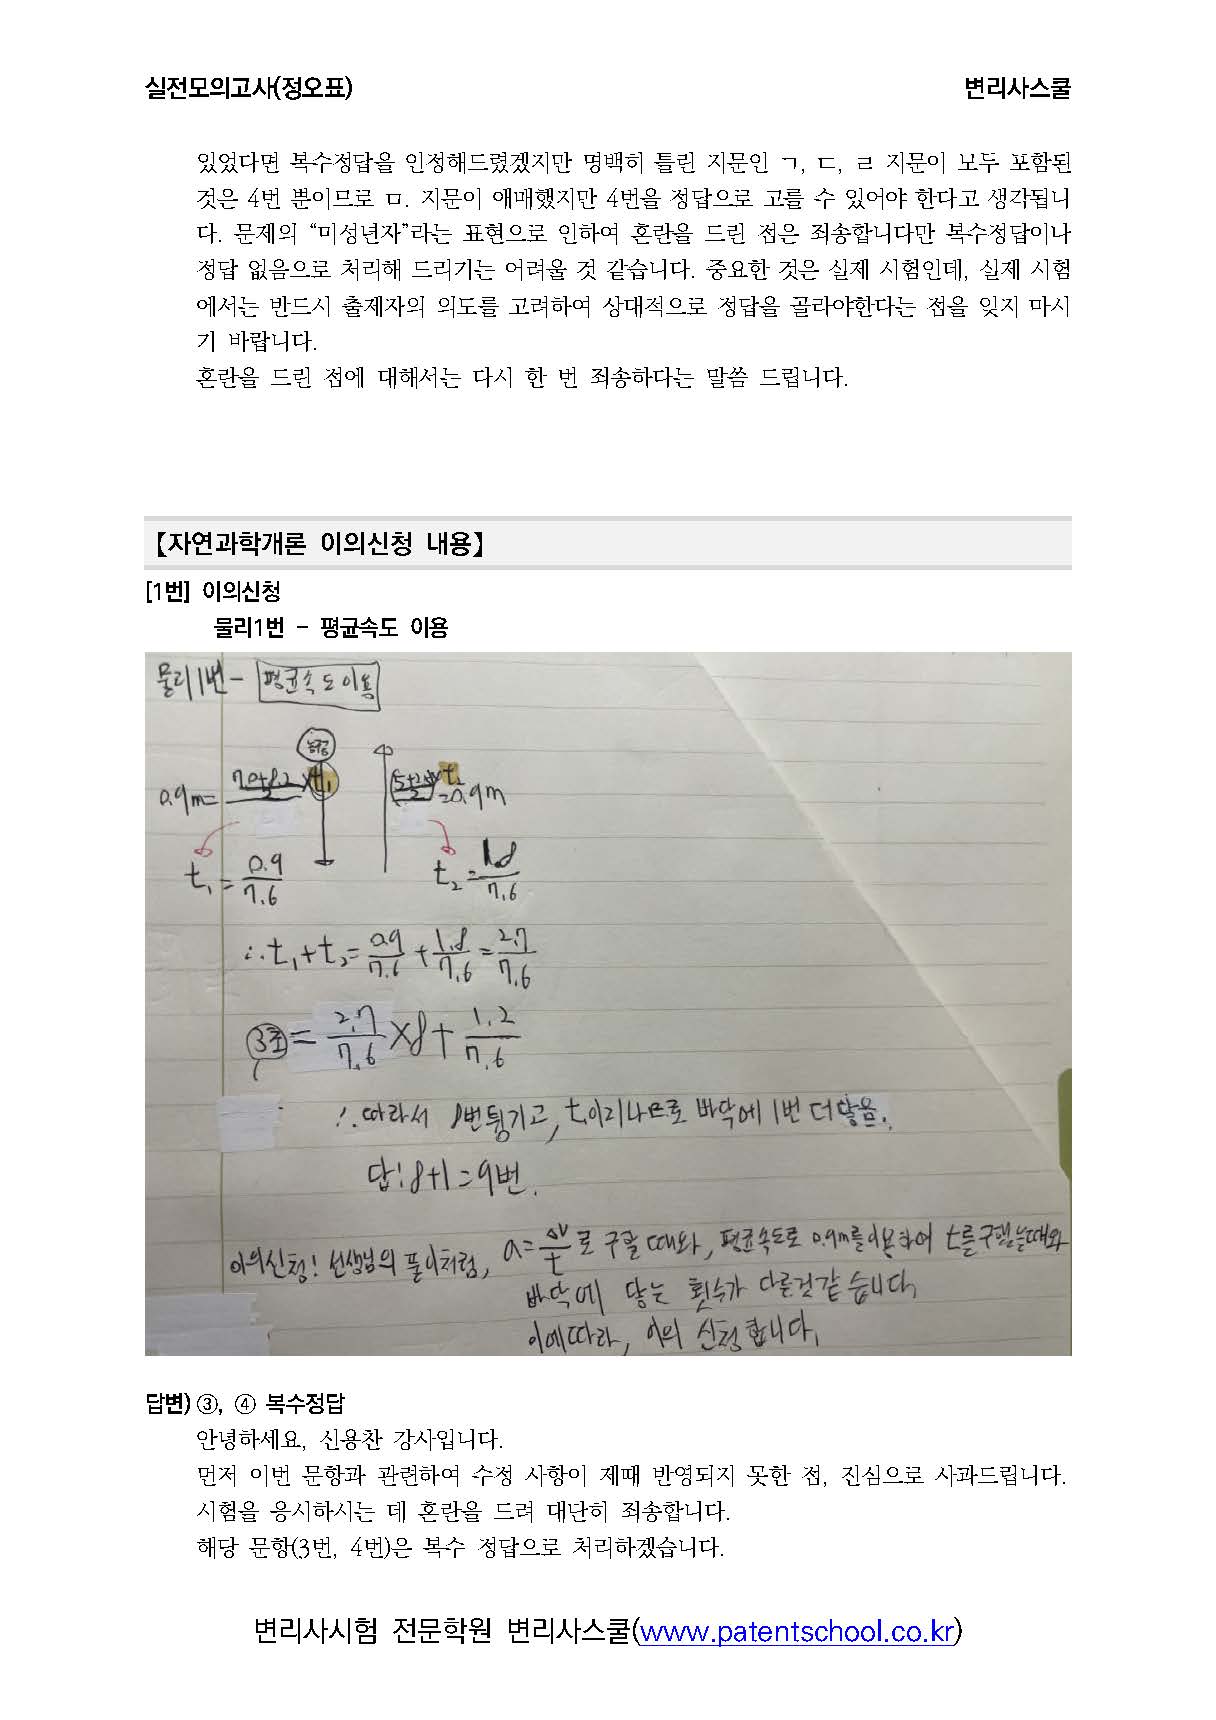 실전모의고사(정오표) 변리사스쿨
있었다면 복수정답을 인정해드렸겠지만 명백히 틀린 지문인 ㄱ, ㄷ, ㄹ 지문이 모두 포함된
것은 4번 뿐이므로 ㅁ. 지문이 애매했지만 4번을 정답으로 고를 수 있어야 한다고 생각됩니
다. 문제의 “미성년자”라는 표현으로 인하여 혼란을 드린 점은 죄송합니다만 복수정답이나
정답 없음으로 처리해 드리기는 어려울 것 같습니다. 중요한 것은 실제 시험인데, 실제 시험
에서는 반드시 출제자의 의도를 고려하여 상대적으로 정답을 골라야한다는 점을 잊지 마시
기 바랍니다.
혼란을 드린 점에 대해서는 다시 한 번 죄송하다는 말씀 드립니다.
【자연과학개론 이의신청 내용】
[1번] 이의신청
물리1번 - 평균속도 이용
물리1번 - 평균속도이용
농구공
0.9m= ×t₁
×t₂ =0.9m
t₁ = 0.9/7.6
t₂ = 1.8/7.6
∴ t₁+t₂ = 0.9/7.6 + 1.8/7.6 = 2.7/7.6
3초 = 2.7/7.6 × 8 + 1.2/7.6
∴ 따라서 8번튕기고, t₁이지나므로 바닥에 1번 더 닿음.
답: 8+1=9번.
이의신청! 선생님의 풀이처럼, a=Δv/t로 구할때와, 평균속도로 0.9m를 이용하여 t를 구했을때와
바닥에 닿는 횟수가 다른것같습니다,
이에따라, 이의 신청합니다,
답변) ③, ④ 복수정답
안녕하세요, 신용찬 강사입니다.
먼저 이번 문항과 관련하여 수정 사항이 제때 반영되지 못한 점, 진심으로 사과드립니다.
시험을 응시하시는 데 혼란을 드려 대단히 죄송합니다.
해당 문항(3번, 4번)은 복수 정답으로 처리하겠습니다.
변리사시험 전문학원 변리사스쿨(www.patentschool.co.kr)